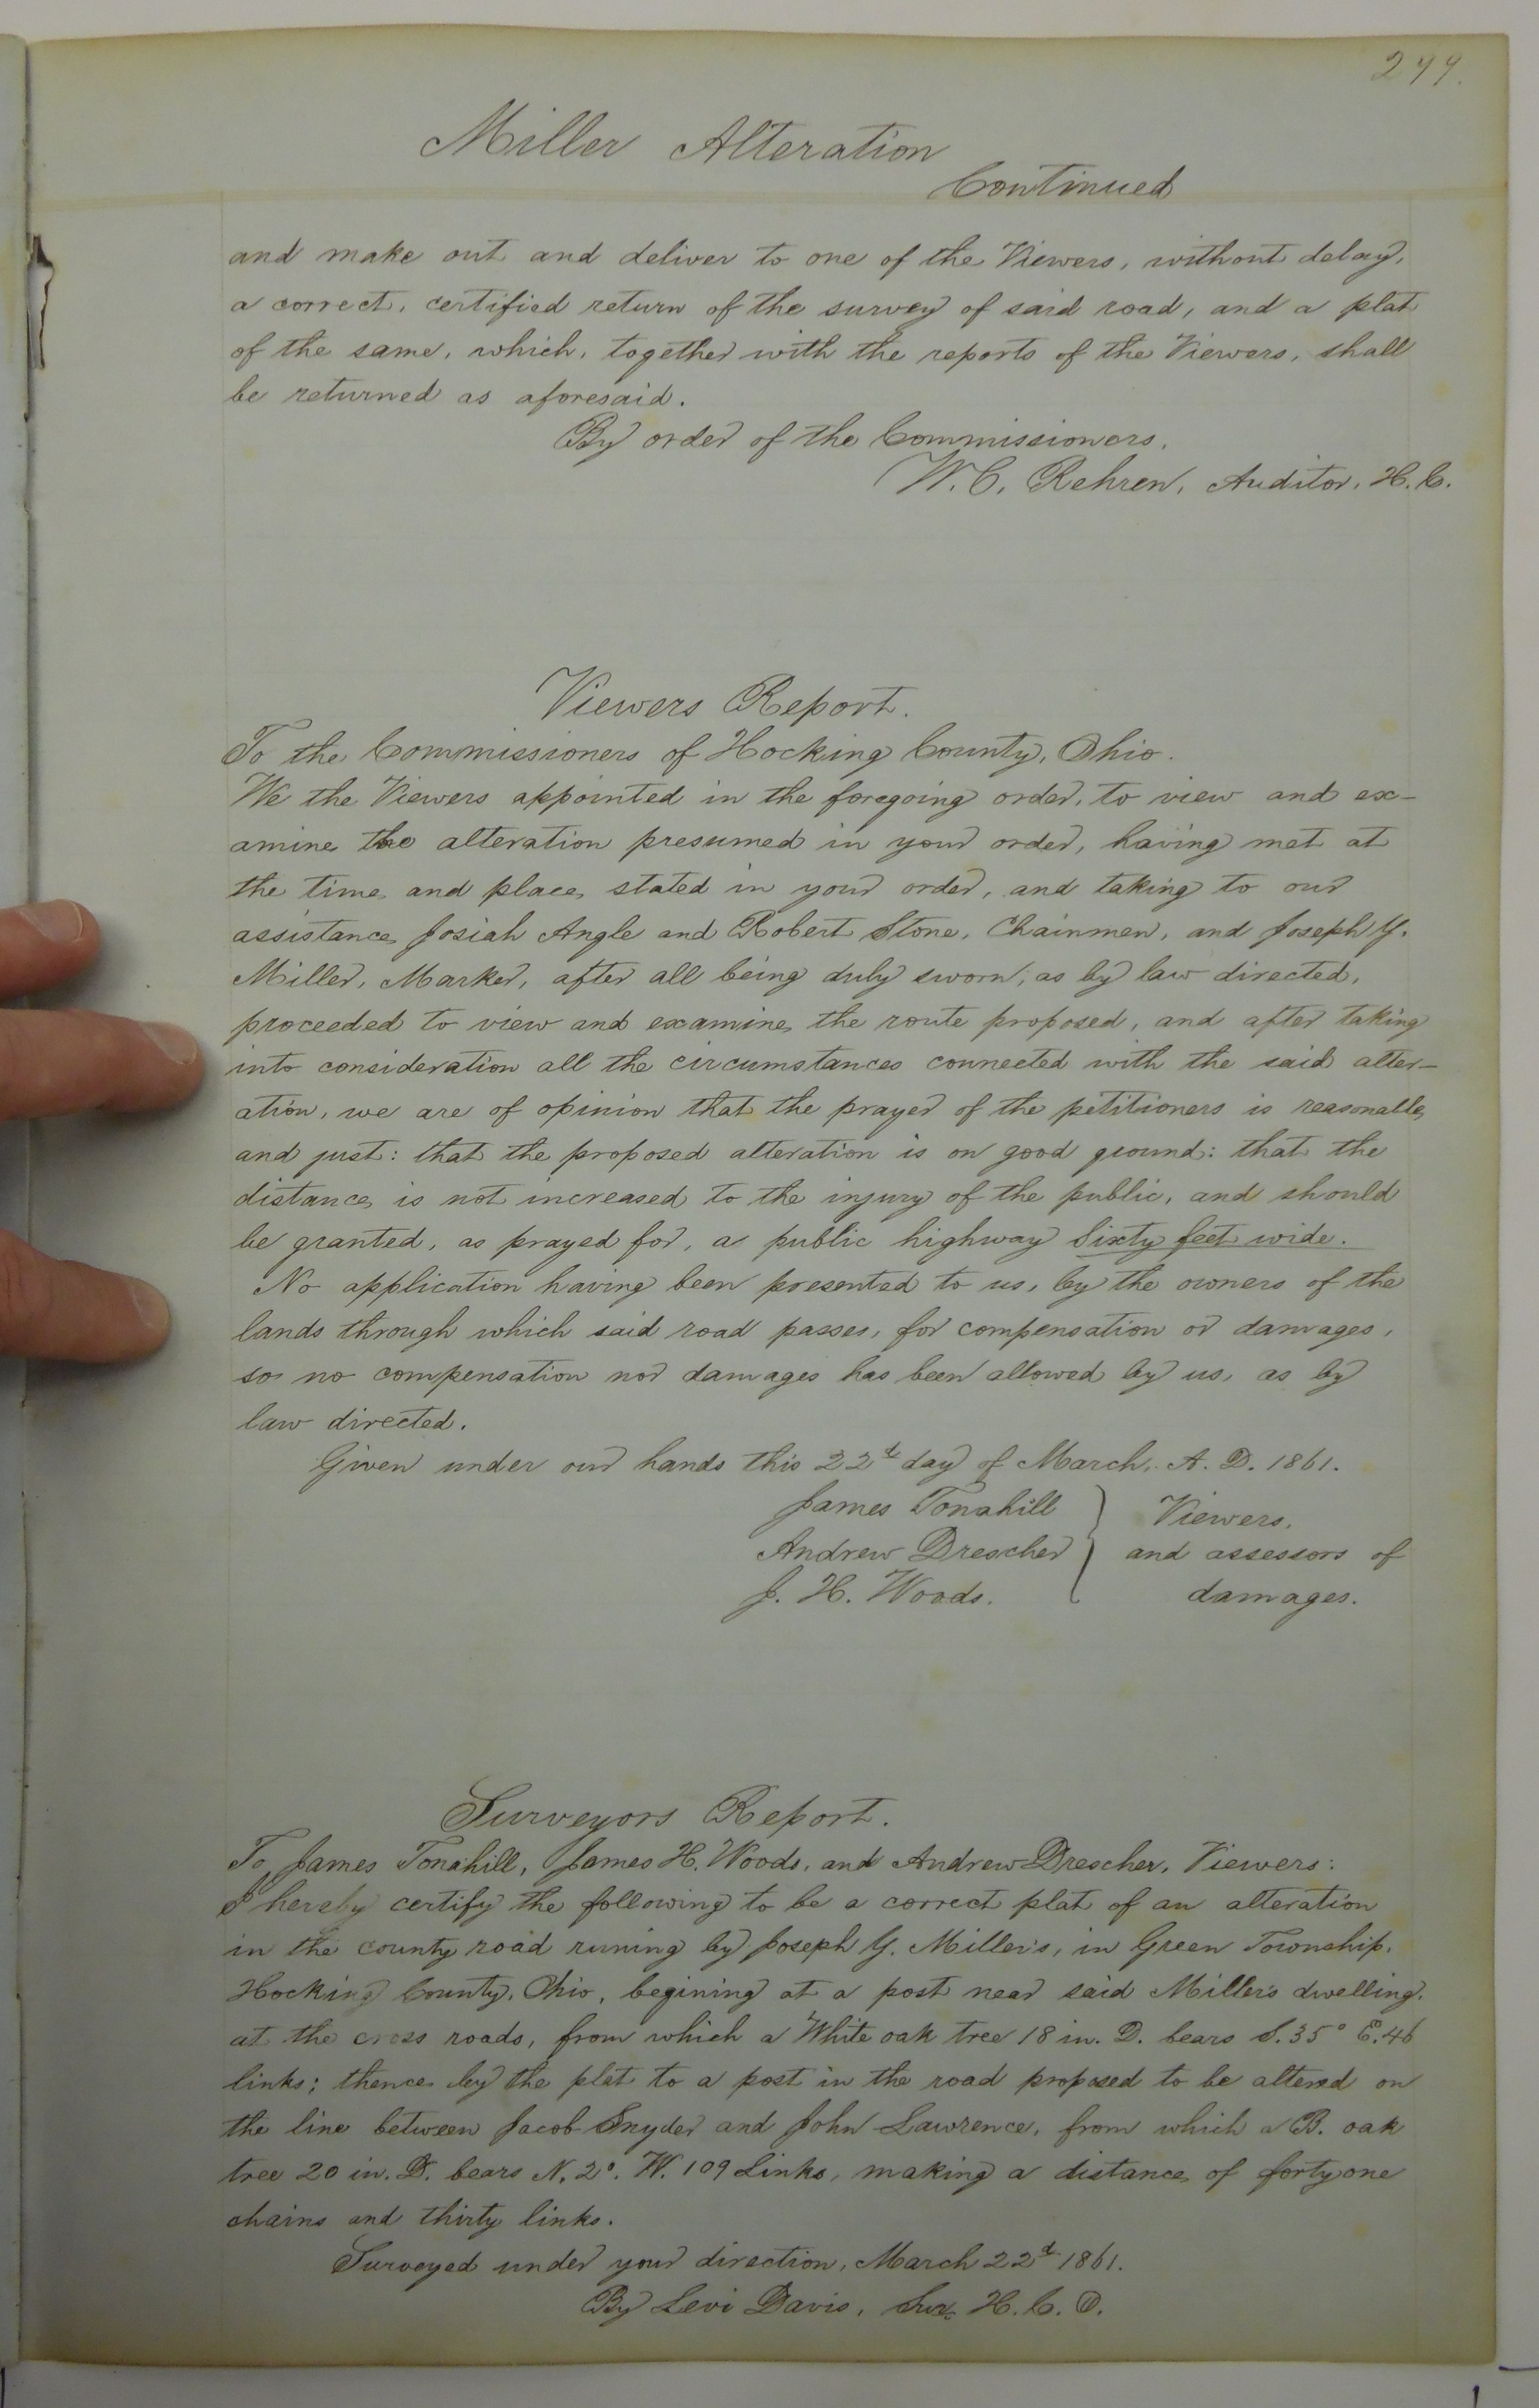 299.
Miller Alteration
Continued
and make out and deliver to one of the Viewers, without delay,
a correct, certified return of the survey of said road, and a plat
of the same, which, together with the reports of the Viewers, shall
be returned as aforesaid.
By order of the Commissioners.
W. C. Rehren, Auditor, H. C.
Viewers Report.
To the Commissioners of Hocking County, Ohio.
We the Viewers appointed in the foregoing order, to view and ex-
amine the alteration presumed in your order, having met at
the time and place stated in your order, and taking to our
assistance Josiah Angle and Robert Stone, Chainmen, and Joseph Y.
Miller, Marker, after all being duly sworn, as by law directed,
proceeded to view and examine the route proposed, and after taking
into consideration all the circumstances connected with the said alter-
ation, we are of opinion that the prayer of the petitioners is reasonable
and just: that the proposed alteration is on good ground: that the
distance is not increased to the injury of the public, and should
be granted, as prayed for, a public highway Sixty feet wide.
No application having been presented to us, by the owners of the
lands through which said road passes, for compensation or damages,
so no compensation nor damages has been allowed by us, as by
law directed.
Given under our hands this 22d day of March, A. D. 1861.
James Tonahill } Viewers,
Andrew Drescher } and assessors of
J. H. Woods. } damages.
Surveyors Report.
To James Tonahill, James H. Woods, and Andrew Drescher, Viewers:
I hereby certify the following to be a correct plat of an alteration
in the county road runing by Joseph Y. Miller's, in Green Township,
Hocking County, Ohio, begining at a post near said Miller's dwelling,
at the cross roads, from which a White oak tree 18 in. D. bears S. 35° E. 46
links; thence by the plat to a post in the road proposed to be altered on
the line between Jacob Snyder and John Lawrence, from which a B. oak
tree 20 in. D. bears N. 2°. W. 109 Links, making a distance of forty one
chains and thirty links.
Surveyed under your direction, March 22d 1861.
By Levi Davis, Sur. H. C. O.